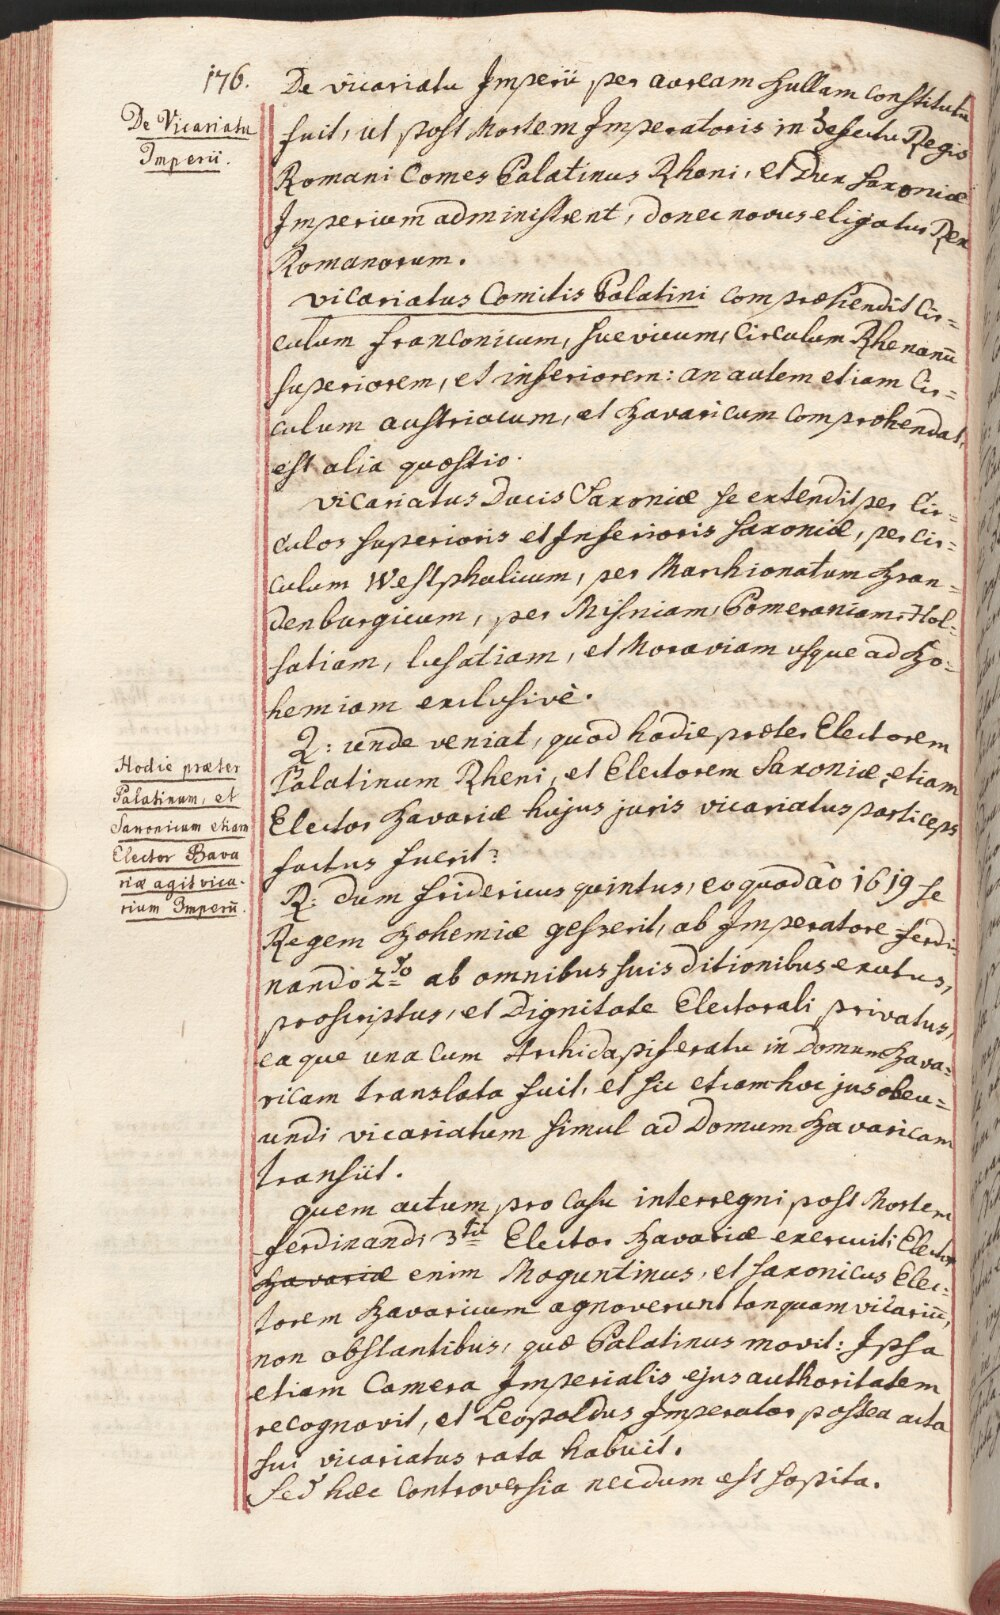 176.
De Vicariatu
Imperii.
De vicariatu Imperii per auream Bullam constitutu
fuit, ut post Mortem Imperatoris in defectu Regis
Romani Comes Palatinus Rheni, et Dux Saxoniæ
Imperium administrent, donec novus eligatur Rex
Romanorum.
Vicariatus Comitis Palatini compræhendit Cir=
culum Franconicum, Suevicum, Circulum Rhenanū
superiorem, et inferiorem: an autem etiam Cir=
culum austriacum, et Bavaricum comprehendat,
est alia quæstio.
Vicariatus Ducis Saxoniæ se extendit per Cir=
culos superioris et Inferioris Saxoniæ, per cir=
culum Westphalicum, per Marchionatum Bran=
denburgicum, per Misniam, Pomeraniam, Hol=
satiam, lusatiam, et Moraviam usque ad Bo=
hemiam exclusivè.
Q: unde veniat, quod hodie præter Electorem
Palatinum Rheni, et Electorem Saxoniæ, etiam
Elector Bavariæ hujus juris vicariatus particeps
factus fuerit?
Hodie præter
Palatinum, et
Saxonicum etiam
Elector Bava
riæ agit vica-
rium Imperii.
R: dum Fridericus quintus, eo quod aō 1619 se
Regem Bohemiæ gesserit, ab Imperatore Ferdi-
nando 2do ab omnibus suis ditionibus exutus,
proscriptus, et Dignitate Electorali privatus,
eaque una cum Archidapiferatu in Domum Bava=
ricam translata fuit, et sic etiam hoc jus obeu=
undi vicariatum simul ad Domum Bavaricam
transiit.
quem actum pro Casu interregni post Mortem
Ferdinandi 3tii Elector Bavariæ exercuit; Elector
Bavariæ enim Moguntinus, et Saxonicus Elec=
torem Bavaricum agnoverunt tanquam vicariū,
non obstantibus, quæ Palatinus movit: Ipsa
etiam Camera Imperialis ejus authoritatem
recognovit, et Leopoldus Imperator postea acta
sui vicariatus rata habuit.
Sed hæc controversia necdum est sopita.